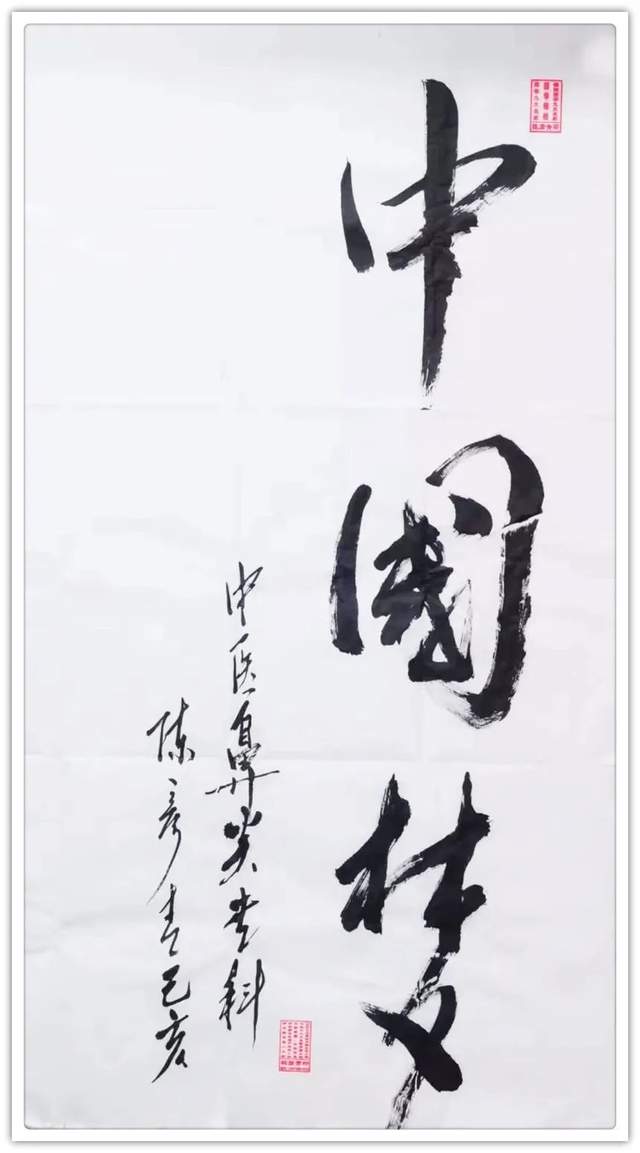 中国梦
中医鼻炎专科
陈彦青己亥